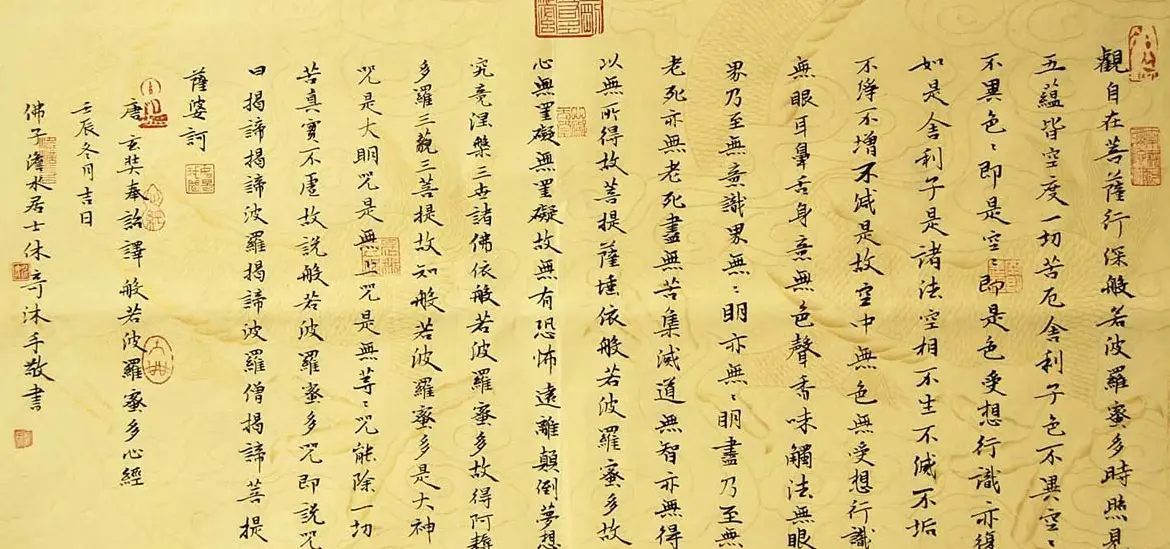 觀自在菩薩行深般若波羅蜜多時照見
五蘊皆空度一切苦厄舍利子色不異空〻
不異色〻即是空〻即是色受想行識亦復
如是舍利子是諸法空相不生不滅不垢
不淨不增不減是故空中無色無受想行識
無眼耳鼻舌身意無色聲香味觸法無眼
界乃至無意識界無〻明亦無〻明盡乃至無
老死亦無老死盡無苦集滅道無智亦無得
以無所得故菩提薩埵依般若波羅蜜多故
心無罣礙無罣礙故無有恐怖遠離顛倒夢想
究竟涅槃三世諸佛依般若波羅蜜多故得阿耨
多羅三藐三菩提故知般若波羅蜜多是大神
咒是大明咒是無上咒是無等〻咒能除一切
苦真實不虛故說般若波羅蜜多咒即說咒
曰揭諦揭諦波羅揭諦波羅僧揭諦菩提
薩婆訶
唐玄奘奉詔譯般若波羅蜜多心經
壬辰冬月吉日
佛子居士休奇沐手敬書